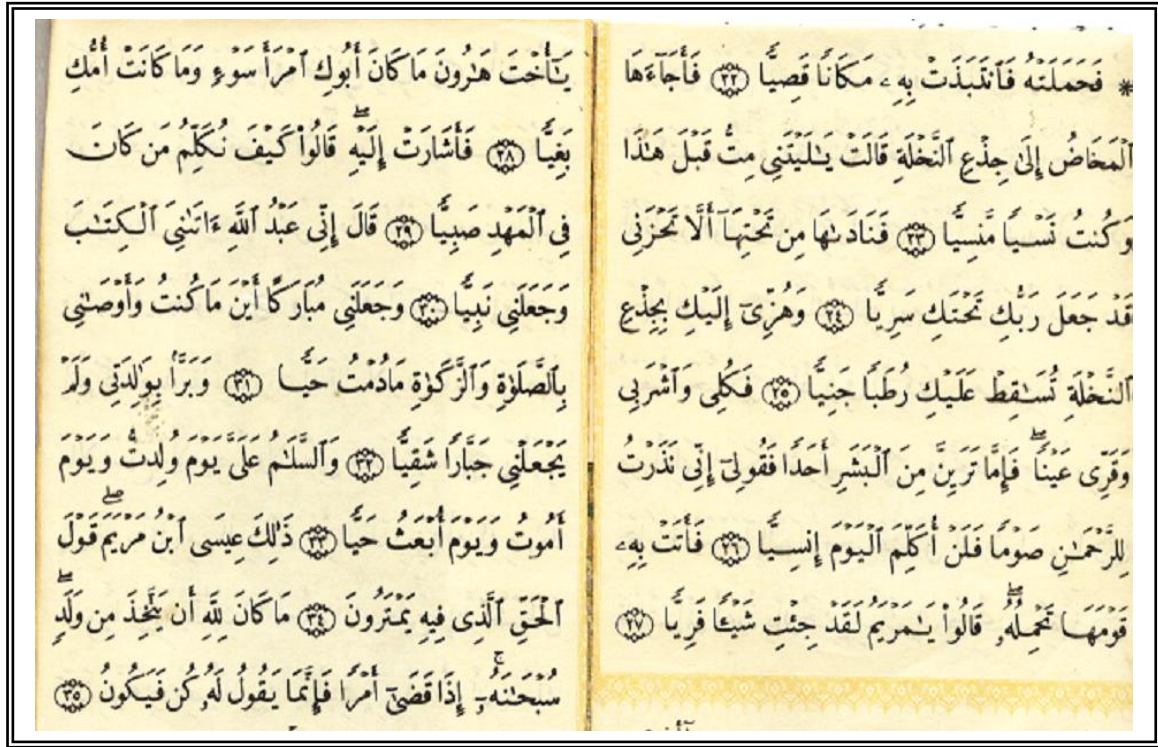 * فَحَمَلَتْهُ فَٱنتَبَذَتْ بِهِۦ مَكَانًا قَصِيًّا ﴿٢٢﴾ فَأَجَآءَهَا
ٱلْمَخَاضُ إِلَىٰ جِذْعِ ٱلنَّخْلَةِ قَالَتْ يَـٰلَيْتَنِى مِتُّ قَبْلَ هَـٰذَا
وَكُنتُ نَسْيًا مَّنسِيًّا ﴿٢٣﴾ فَنَادَىٰهَا مِن تَحْتِهَآ أَلَّا تَحْزَنِى
قَدْ جَعَلَ رَبُّكِ تَحْتَكِ سَرِيًّا ﴿٢٤﴾ وَهُزِّىٓ إِلَيْكِ بِجِذْعِ
ٱلنَّخْلَةِ تُسَـٰقِطْ عَلَيْكِ رُطَبًا جَنِيًّا ﴿٢٥﴾ فَكُلِى وَٱشْرَبِى
وَقَرِّى عَيْنًاۖ فَإِمَّا تَرَيِنَّ مِنَ ٱلْبَشَرِ أَحَدًا فَقُولِىٓ إِنِّى نَذَرْتُ
لِلرَّحْمَـٰنِ صَوْمًا فَلَنْ أُكَلِّمَ ٱلْيَوْمَ إِنسِيًّا ﴿٢٦﴾ فَأَتَتْ بِهِۦ
قَوْمَهَا تَحْمِلُهُۥۖ قَالُوا۟ يَـٰمَرْيَمُ لَقَدْ جِئْتِ شَيْـًٔا فَرِيًّا ﴿٢٧﴾
يَـٰٓأُخْتَ هَـٰرُونَ مَا كَانَ أَبُوكِ ٱمْرَأَ سَوْءٍ وَمَا كَانَتْ أُمُّكِ
بَغِيًّا ﴿٢٨﴾ فَأَشَارَتْ إِلَيْهِۖ قَالُوا۟ كَيْفَ نُكَلِّمُ مَن كَانَ
فِى ٱلْمَهْدِ صَبِيًّا ﴿٢٩﴾ قَالَ إِنِّى عَبْدُ ٱللَّهِ ءَاتَىٰنِىَ ٱلْكِتَـٰبَ
وَجَعَلَنِى نَبِيًّا ﴿٣٠﴾ وَجَعَلَنِى مُبَارَكًا أَيْنَ مَا كُنتُ وَأَوْصَـٰنِى
بِٱلصَّلَوٰةِ وَٱلزَّكَوٰةِ مَا دُمْتُ حَيًّا ﴿٣١﴾ وَبَرًّۢا بِوَٰلِدَتِى وَلَمْ
يَجْعَلْنِى جَبَّارًا شَقِيًّا ﴿٣٢﴾ وَٱلسَّلَـٰمُ عَلَىَّ يَوْمَ وُلِدتُّ وَيَوْمَ
أَمُوتُ وَيَوْمَ أُبْعَثُ حَيًّا ﴿٣٣﴾ ذَٰلِكَ عِيسَى ٱبْنُ مَرْيَمَۖ قَوْلَ
ٱلْحَقِّ ٱلَّذِى فِيهِ يَمْتَرُونَ ﴿٣٤﴾ مَا كَانَ لِلَّهِ أَن يَتَّخِذَ مِن وَلَدٍۖ
سُبْحَـٰنَهُۥٓۚ إِذَا قَضَىٰٓ أَمْرًا فَإِنَّمَا يَقُولُ لَهُۥ كُن فَيَكُونُ ﴿٣٥﴾